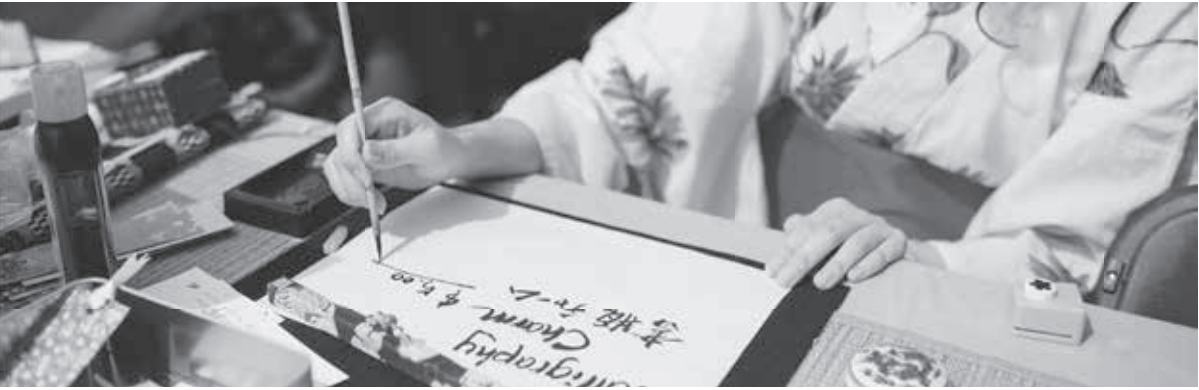 lligraphy
Charm $5.00
チャーム